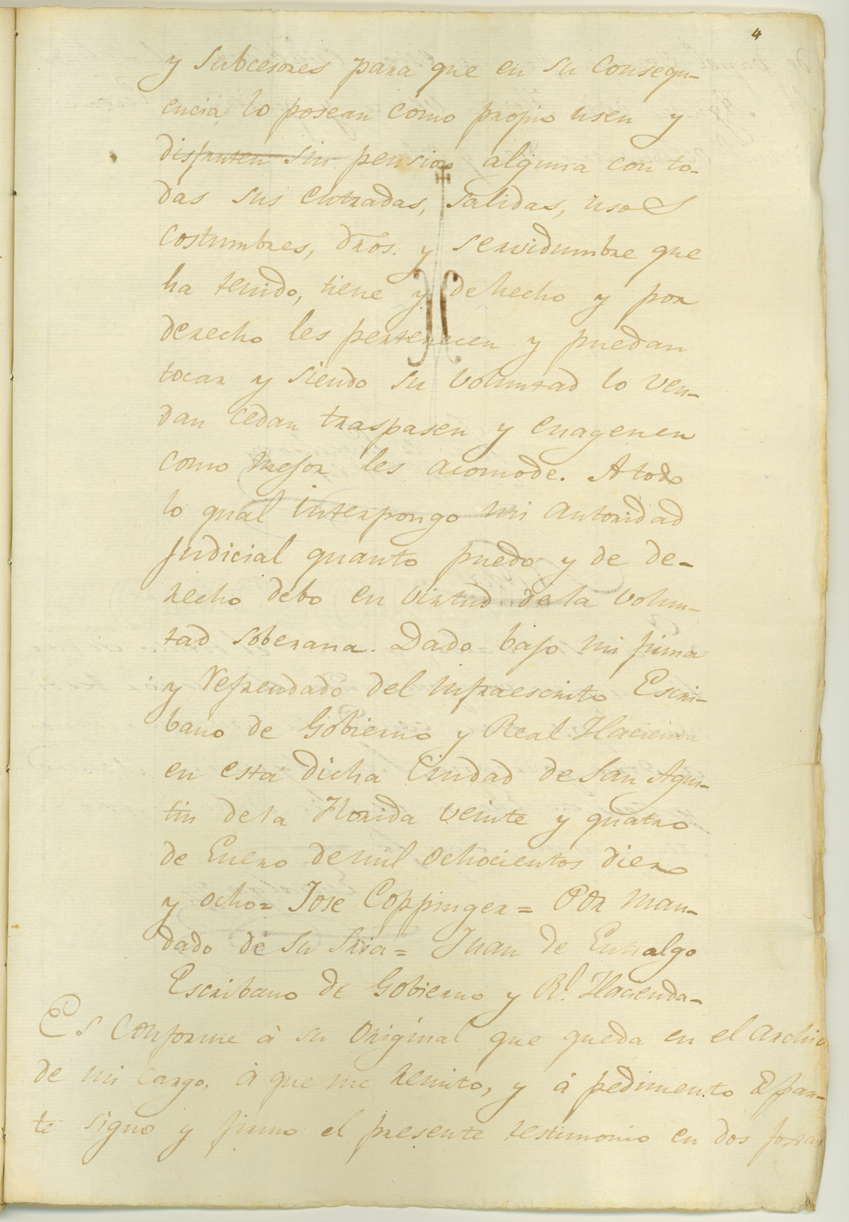 4
y subcesores para que en su consequ-
encia lo posean como propio usen y
disfruten sin pension alguna con to-
das sus entradas, salidas, usos
costumbres, dros. y servidumbre que
ha tenido, tiene y de hecho y por
derecho les pertenecen y puedan
tocar y siendo su voluntad lo ven-
dan cedan traspasen y enagenen
como mejor les acomode. A todo
lo qual interpongo mi autoridad
judicial quanto puedo y de de-
recho debo en virtud de la volun-
tad soberana. Dado bajo mi firma
y refrendado del infraescrito Escri-
bano de Gobierno y Real Hacienda
en esta dicha Ciudad de San Agus-
tin de la Florida veinte y quatro
de Enero de mil ochocientos diez
y ocho= Jose Coppinger= Por man-
dado de su Sria= Juan de Entralgo
Escribano de Gobierno y Rl. Hacienda-
Es conforme á su original que queda en el archivo
de mi cargo, á que me remito, y á pedimento de par-
te signo y firmo el presente testimonio en dos foxas